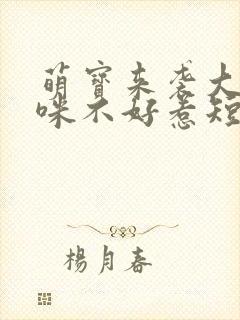 萌寶来袭大
咪不好惹短
楊月春